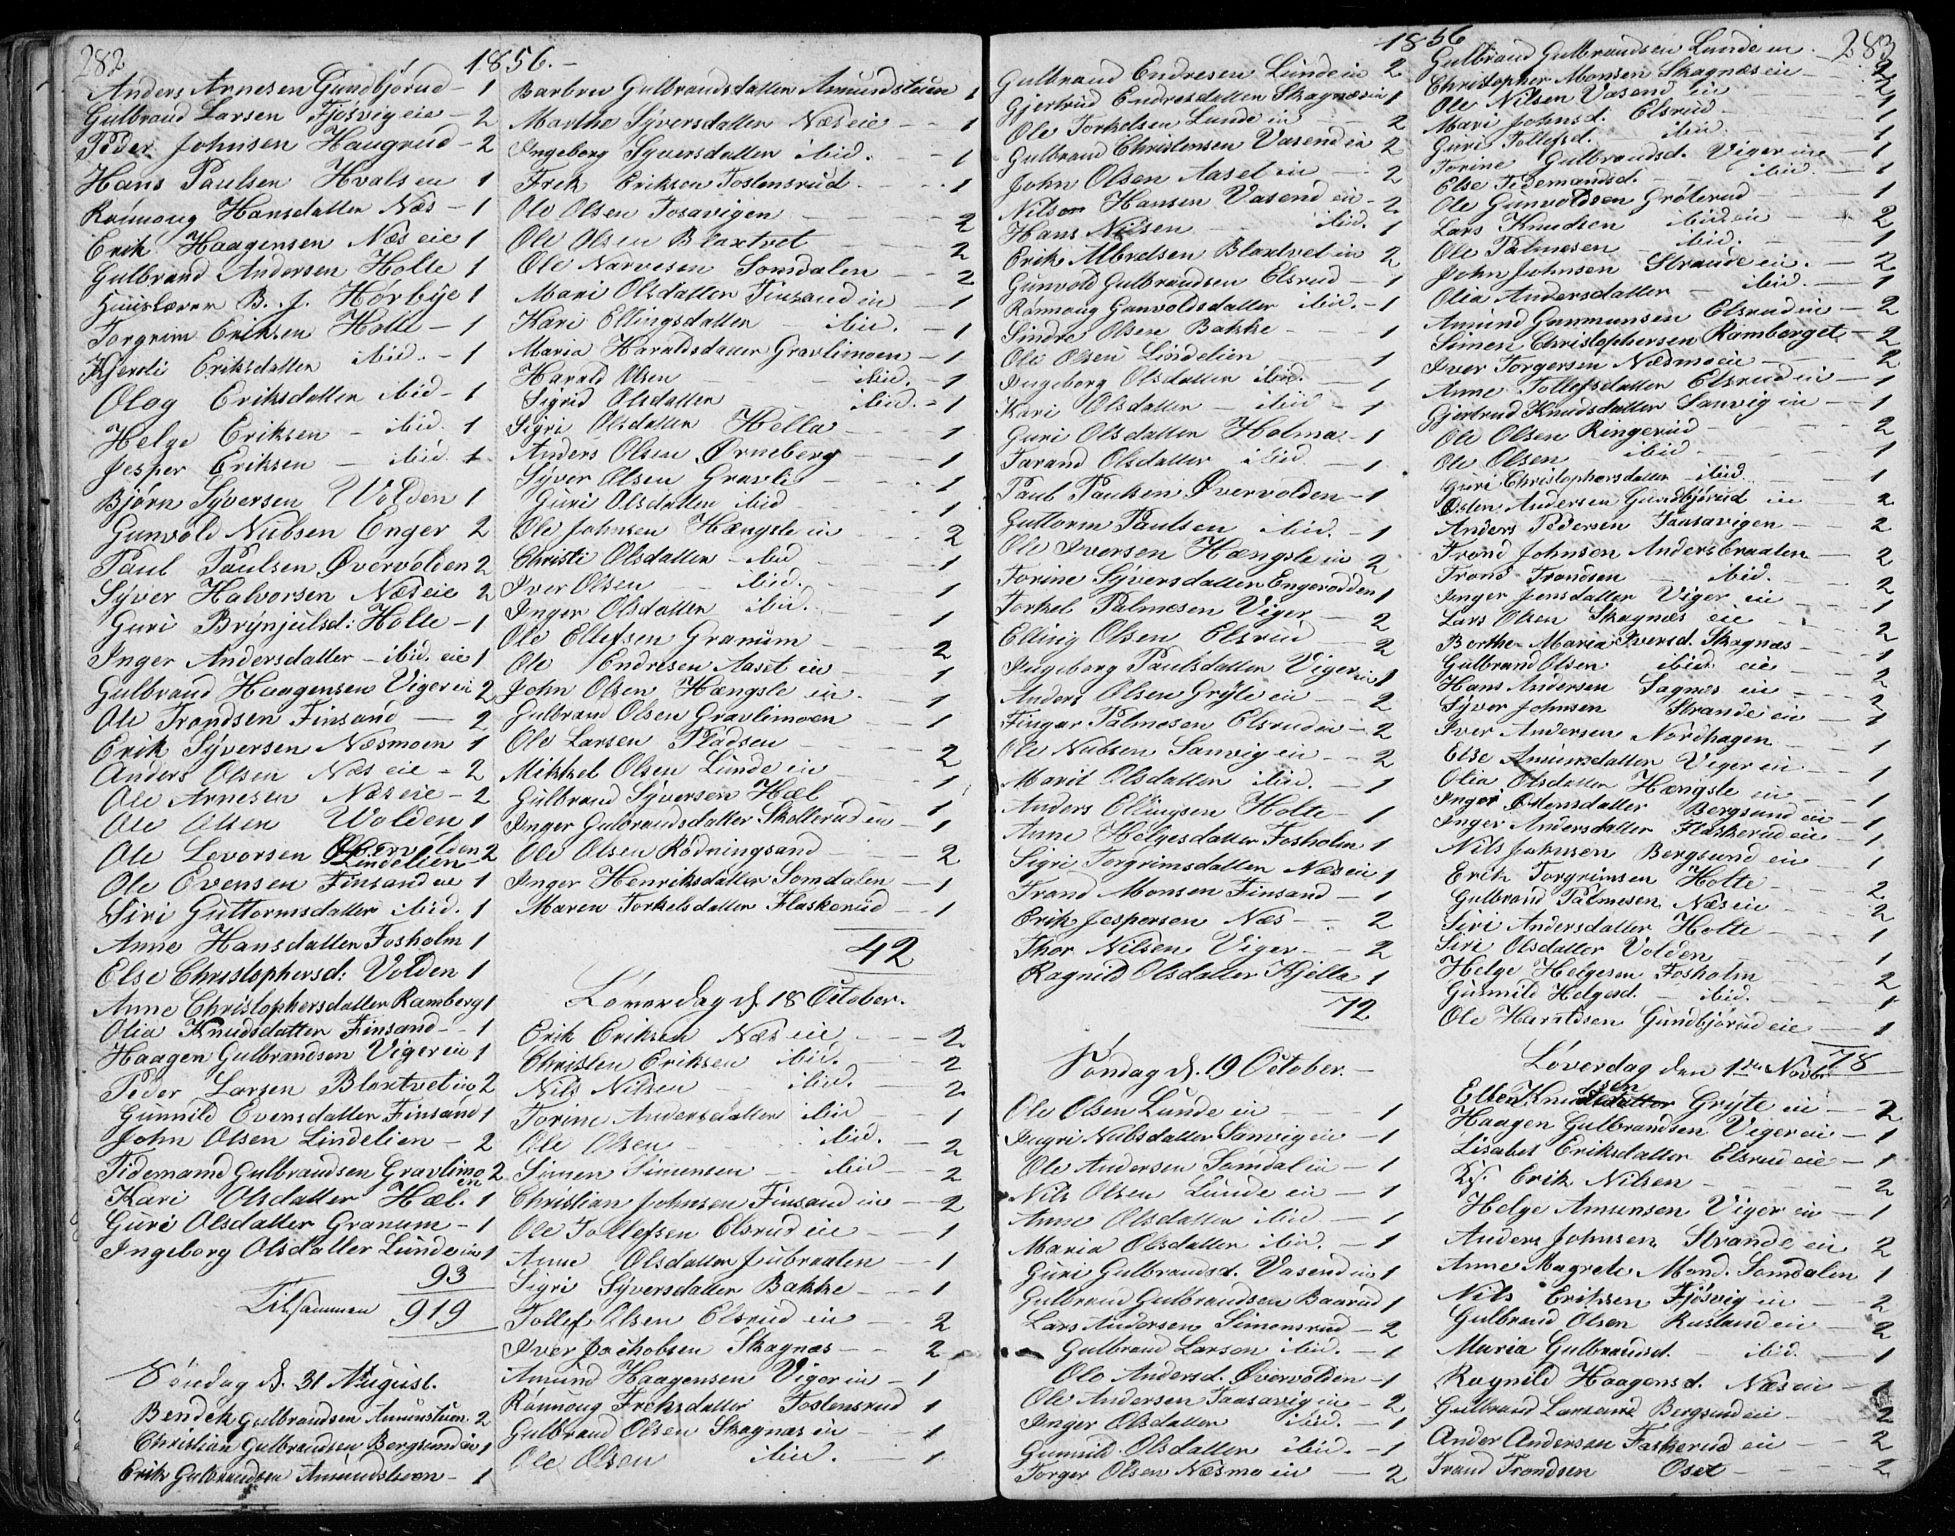 282
1856.-
Anders Arnesen Gundbjørud - 1
Gulbrand Larsen Fjøsvig eie - 2
Peder Johnsen Haugrud - 2
Hans Paulsen Hvalsen 1
Rønnoug Hansdatter Næs - 1
Erik Haagensen Næs eie 1
Gulbrand Andersen Holte 1
Huuslærer B. J. Hørbye 1
Torgrim Eriksen Holte - 1
Kjersti Eriksdatter ibid. - 1
Olog Eriksdatter ibid - 1
Helge Eriksen - ibid. 1
Jesper Eriksen - ibid. 1
Bjørn Syversen Volden 1
Gunvold Nubsen Enger 2
Paul Paulsen Øvervolden 2
Syver Halvorsen Næs eie 2
Guri Brynjulsd: Holte - 1
Inger Andersdatter - ibid. eie 1
Gulbrand Haagensen Viger ein 2
Ole Trondsen Finsand - 2
Erik Syversen Næsmoen 1
Anders Olsen Næs eie - 2
Ole Arnesen Næs eie - 2
Ole Olsen Volden 1
Ole Levorsen Øvervolden 2
Lindelien
Ole Evensen Finsand eie 1
Siri Guttormsdatter ibid. 1
Anne Hansdatter Fosholm 1
Else Christophersd: Volden 1
Anne Christophersdatter Ramberg 1
Olia Knudsdatter Finsand - 1
Haagen Gulbrandsen Viger ein 1
Peder Larsen Blaxtvet ein 2
Gunnild Evensdatter Finsand 1
John Olsen Lindelien - 2
Tidemand Gulbrandsen Gravlimoen 2
Kari Olsdatter Hæl. 1
Guri Olsdatter Granum - 1
Ingeborg Olsdatter Lunde ein 1
93
Tilsammen 919
Søndag d. 31 August.
Bendek Gulbrandsen Amunstuen 2
Christian Gulbrandsen Bergsund ein 1
Erik Gulbrandsen Amundstuen - 1
Barbru Gulbrandsdatter Amundstuen 1
Marthe Syversdatter Næs eie - 1
Ingeborg Syversdatter ibid. - 1
Frek Eriksen Tostensrud - 1
Ole Olsen Tosavigen 2
Ole Olsen Blaxtvet 2
Ole Narvesen Somdalen - 2
Mari Olsdatter Finsand ein - 1
Kari Ellingsdatter - ibid. - 1
Maria Haraldsdatter Gravlimoen - 1
Harald Olsen - ibid. - 1
Sigrid Olsdatter - ibid. - 1
Sigri Olsdatter Hella - 1
Anders Olsen Ørneberg - 1
Syver Olsen Gravli - 1
Guri Olsdatter ibid - 1
Ole Johnsen Hængsle ein - 2
Christi Olsdatter - ibid - 1
Iver Olsen - ibid. - 1
Inger Olsdatter ibid. 1
Ole Ellefsen Granum - 2
Ole Endresen Aaset ein - 1
John Olsen Hængsle ein. 1
Gulbrand Olsen Gravlimoen - 1
Ole Larsen Pladsen - 2
Mikkel Olsen Lunde ein - 1
Gulbrand Syversen Hæl - 1
Inger Gulbrandsdatter Skollerud ein - 1
Ole Olsen Rødningsand - 2
Inger Henriksdatter Somdalen - 1
Maren Torkelsdatter Flaskerud - 1
42
Løverdag d. 18 October.
Erik Eriksen Næs eie - 2
Christen Eriksen ibid. - 2
Nils Nilsen - ibid. - 2
Torine Andersdatter ibid 1
Ole Olsen - ibid. - 2
Simen Simensen - ibid - 2
Christian Johnsen Finsand ein - 2
Ole Tollefsen Elsrud eie - 1
Anne Olsdatter Jubraaten - 1
Sigri Syversdatter Bakke - 1
Tollef Olsen Elsrud ein - 2
Iver Jachobsen Skagnæs - 2
Amund Haagensen Viger ein - 1
Rønnoug Freksdatter Tostensrud 1
Gulbrand Olsen Skagnæs ein - 1
Ole Olsen ibid. - 1
1856
283
Gulbrand Endresen Lunde ein 2
Gjertrud Endresdatter Skagnæs ein 1
Ole Torkelsen Lunde ein - 2
Gulbrand Christensen Vasend ein 2
John Olsen Aaset ein - 2
Nilsen Hansen Vasend ein - 2
Hans Nilsen - ibid. 1
Erik Albretsen Blaxtvet ein 2
Gunvold Gulbrandsen Elsrud - 1
Rønnoug Gunvoldsdatter ibid. - 1
Sindre Olsen Bakke - 1
Ole Olsen Lindelien - 1
Ingeborg Olsdatter ibid. - 1
Kari Olsdatter - ibid - 1
Guri Olsdatter Holma - 1
Tarand Olsdatter ibid - 1
Paul Paulsen Øvervolden - 1
Guttorm Paulsen ibid. - 1
Ole Iversen Hængsle ein 2
Torine Syversdatter Engerodden 1
Torkel Palmesen Viger - 2
Elling Olsen Elsrud 2
Ingeborg Paulsdatter Viger ein 1
Anders Olsen Gryte ein - 2
Fingar Palmesen Elsrud ein - 2
Ole Nubsen Sanvig ein - 2
Marit Olsdatter ibid. - 1
Anders Ellingsen Holte - 1
Anne Helgesdatter Fosholm 1
Sigri Torgrimsdatter Næs ein 1
Trand Monsen Finsand - 1
Erik Jespersen Næs - 2
Thor Nilsen Viger - 2
Ragnild Olsdatter Hjella 1
72
Søndag d. 19 October. -
Ole Olsen Lunde ein 1
Ingri Nubsdatter Sanvig ein - 1
Ole Andersen Somdal ein - 1
Nils Olsen Lunde ein - 1
Anne Olsdatter ibid - 1
Maria Olsdatter ibid. - 1
Guri Gulbrandsd. Vasend ein 1
Gulbrand Gulbrandsen Baarud 1
Lars Andersen Simensrud - 2
Gulbrand Larsen ibid. - 1
Ole Andersd. Øvervolden - 1
Ole Andersen Taasavig ein - 2
Inger Olsdatter ibid. - 1
Gunnild Olsdatter ibid. - 1
Torger Olsen Næsmo ein - 2
Gulbrand Gulbrandsen Lunde ein. 2
Christopher Monsen Skagnæs eie - 2
Ole Nilsen Vasend ein - 1
Mari Johnsd. Elsrud - 1
Guri Tollefsd. ibid. - 1
Torine Gulbrandsd. Viger ein - 1
Else Tidemandsd. - ibid. - 1
Ole Gunvoldsen Gróterud - 1
Lars Knudsen ibid ein - 2
Ole Palmesen - ibid. - 1
John Johnsen Strande ein. - 2
Olia Andersdatter - ibid. - 1
Amund Gunmunsen Elsrud ein - 2
Simen Christophersen Ramberget - 2
Iver Torgersen Næsmo eie - 2
Anne Tollefsdatter Elsrud ein - 1
Gjertrud Knudsdatter Sanvig ein - 1
Ole Olsen Ringerud - 2
Ole Olsen ibid - 1
Guri Christophersdatter ibid - 1
Osten Andersen Gundbjørud ein 2
Anders Pedersen Taasavigen - 2
Trond Johnsen Andersbraaten - 2
Trond Trondsen - ibid. 2
Inger Jensdatter Viger ein - 1
Lars Olsen Skagnæs eie - 2
Berthe Maria Iversd. Skagnæs - 1
Gulbrand Olsen ibid eie - 2
Hans Andersen Sagnes ein - 2
Syver Johnsen Strande ein - 1
Iver Andersen Nordhagen - 1
Else Amunsdatter Viger ein - 1
Olia Olsdatter Hængsle ein - 1
Inger Østensdatter Bergsund ein - 1
Inger Andersdatter Flaskerud ein - 1
Nils Johnsen Bergsund ein 1
Erik Torgrimsen Holte - 2
Gulbrand Palmesen Næs ein - 2
Siri Andersdatter Holte - 1
Siri Olsdatter Volden - 1
Helge Helgesen Fosholm 2
Gunnild Helgesd. - ibid. 1
Ole Haraldsen Gundbjørud eie - 1
78
Løverdag den 1ste Novbr
Ellen Knudsen Gryte ein - 2
Haagen Gulbrandsen Viger ein - 1
Lisabet Eriksdatter Elsrud eie - 1
Erik Nilsen - 2
Helge Amunsen Viger ein - 1
Anders Johnsen Strande ein 2
Anne Magrete Mond. Somdalen 1
Nils Eriksen Fjøsvig ein - 2
Gulbrand Olsen Rustand ein - 2
Maria Gulbrandsd. - ibid. - 1
Ragnild Haagensd. Næs ein - 1
Gulbrand Larsen Bergsund ein - 2
Ander Andersen Faskerud ein - 2
Trand Trondsen Oset - 2